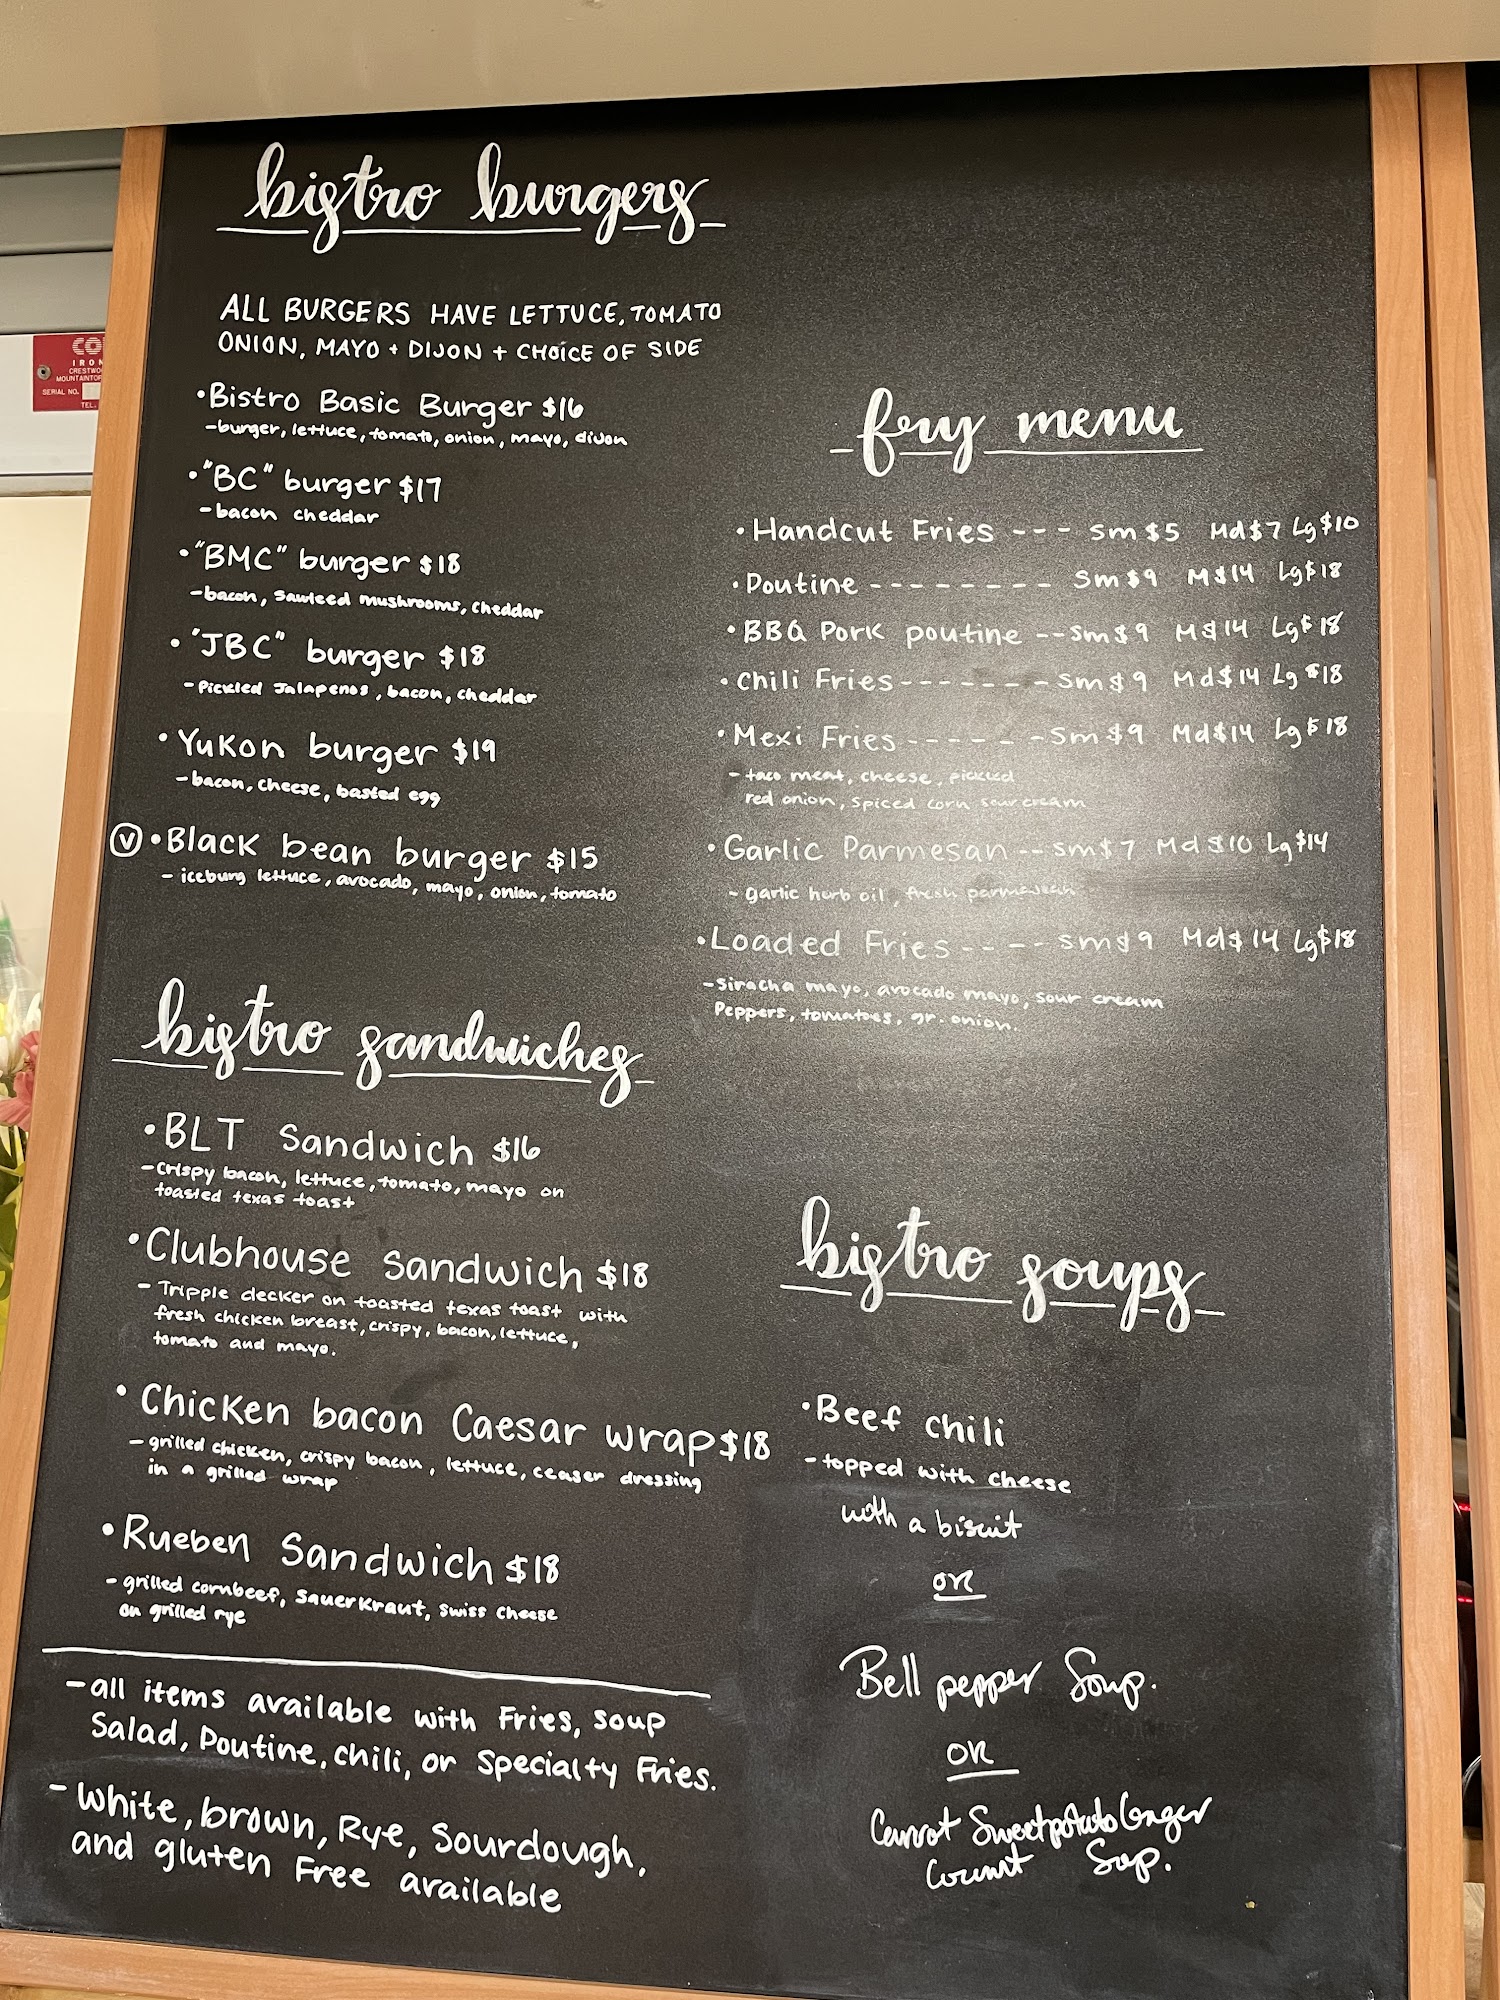 bistro burgers
ALL BURGERS HAVE LETTUCE, TOMATO
ONION, MAYO + DIJON + CHOICE OF SIDE
•Bistro Basic Burger $16
-burger, lettuce, tomato, onion, mayo, dijon
•"BC" burger $17
-bacon cheddar
•"BMC" burger $18
-bacon, sauteed mushrooms, cheddar
•"JBC" burger $18
-Pickled Jalapenos, bacon, cheddar
•Yukon burger $19
-bacon, cheese, basted egg
Ⓥ •Black bean burger $15
- iceburg lettuce, avocado, mayo, onion, tomato
bistro sandwiches
•BLT Sandwich $16
-Crispy bacon, lettuce, tomato, mayo on
toasted texas toast
•Clubhouse sandwich $18
- Tripple decker on toasted texas toast with
fresh chicken breast, crispy, bacon, lettuce,
tomato and mayo.
• Chicken bacon Caesar wrap $18
- grilled chicken, crispy bacon, lettuce, ceaser dressing
in a grilled wrap
•Rueben Sandwich $18
- grilled cornbeef, sauerkraut, swiss cheese
on grilled rye
-all items available with Fries, soup
Salad, Poutine, chili, or Specialty Fries.
- White, brown, Rye, Sourdough,
and gluten Free available
fry menu
•Handcut Fries --- Sm $5 Md $7 Lg $10
•Poutine -------- Sm $9 M $14 Lg $18
•BBQ Pork poutine --Sm $9 M $14 Lg $18
•Chili Fries-------Sm $9 Md $14 Lg $18
•Mexi Fries------Sm $9 Md $14 Lg $18
- taco meat, cheese, pickled
red onion, spiced corn sour cream
•Garlic Parmesan--Sm $7 Md $10 Lg $14
- garlic herb oil, fresh parmesean
•Loaded Fries----Sm $9 Md $14 Lg $18
-Siracha mayo, avocado mayo, sour cream
Peppers, tomatoes, gr. onion.
bistro soups
•Beef chili
-topped with cheese
with a biscuit
OR
Bell pepper Soup.
OR
Carrot Sweetpotato Ginger
Soup.
CO
IRON
CRESTWO
MOUNTAINTOP
SERIAL NO.
TEL.